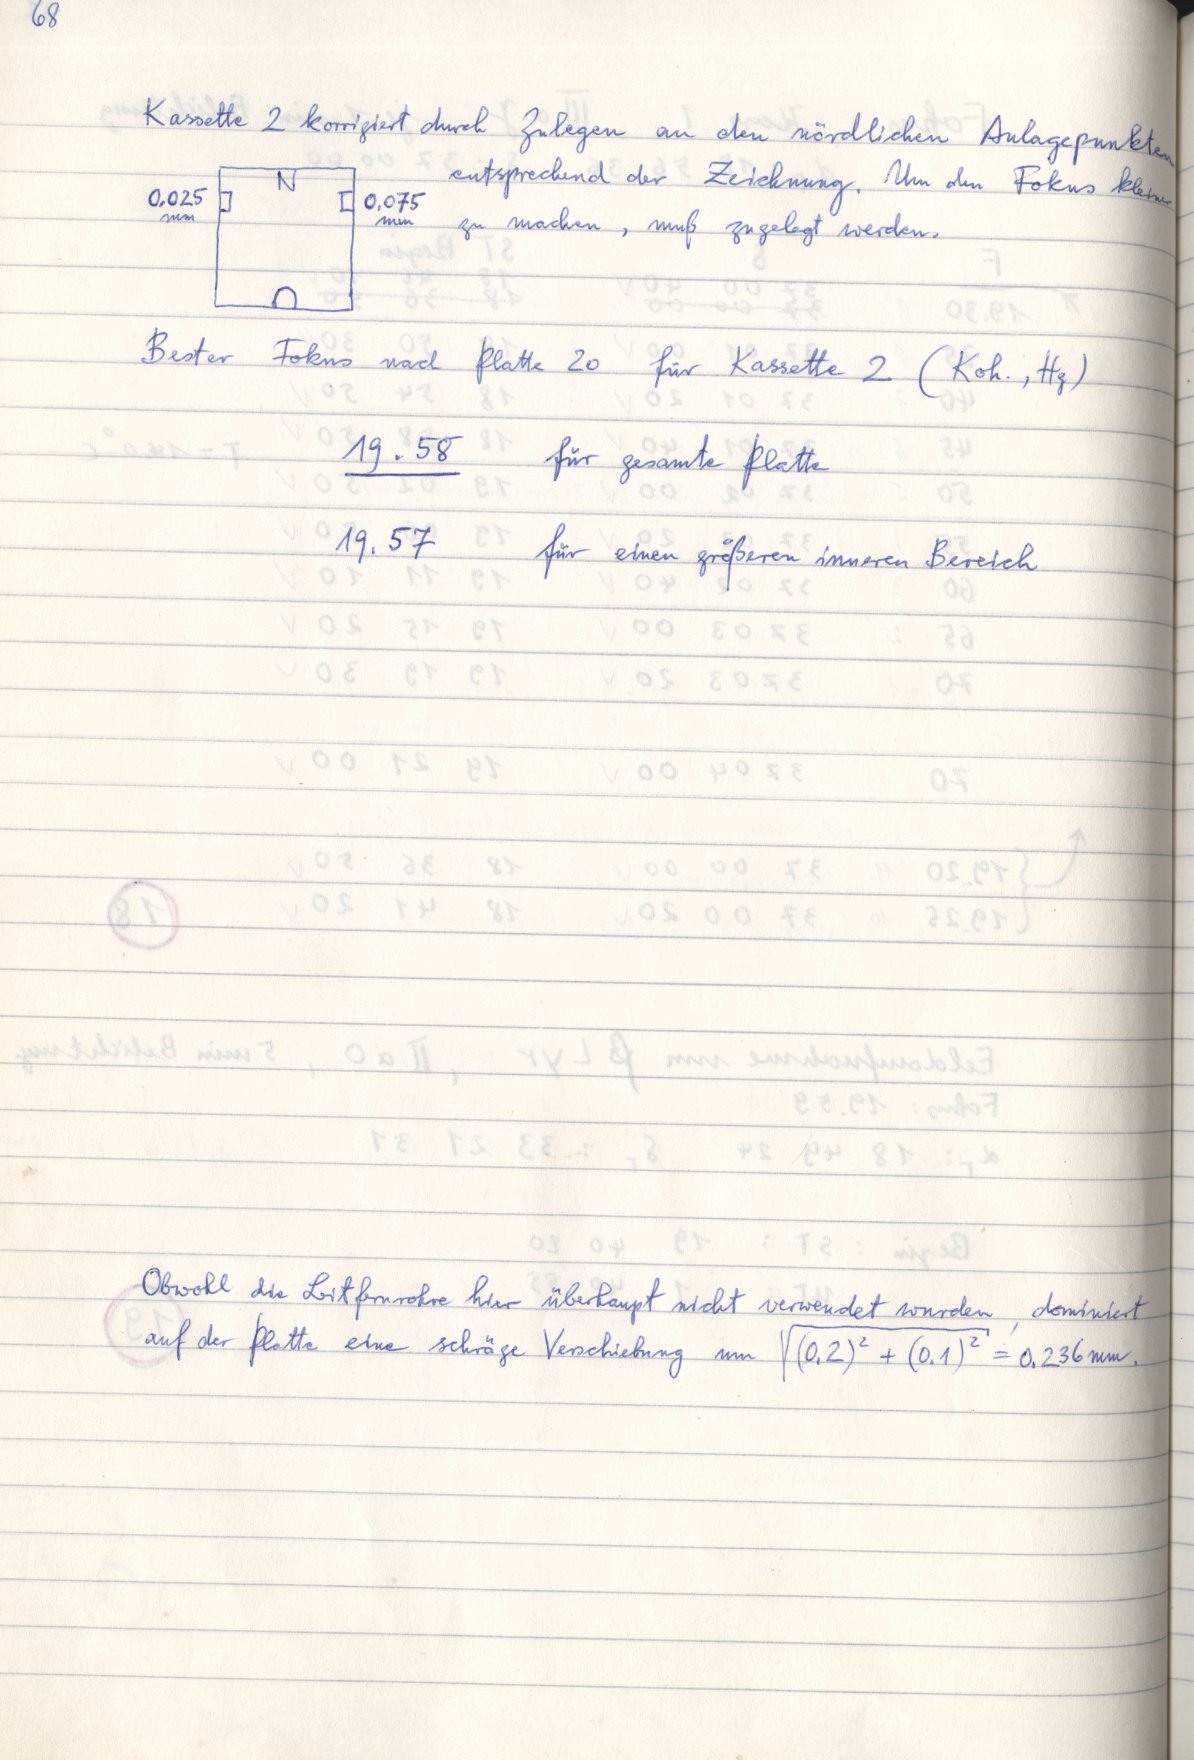 68
Kassette 2 korrigiert durch Zulegen an den nördlichen Anlagepunkten
entsprechend der Zeichnung. Um den Fokus kleiner
zu machen, muß zugelegt werden.
0.025 mm
N
0.075 mm
Bester Fokus nach Platte 20 für Kassette 2 (Koh., Hg)
19.58 für gesamte Platte
19.57 für einen größeren inneren Bereich
Obwohl die Leitfernrohre hier überhaupt nicht verwendet wurden, dominiert
auf der Platte eine schräge Verschiebung um √(0.2)² + (0.1)² = 0.236 mm.